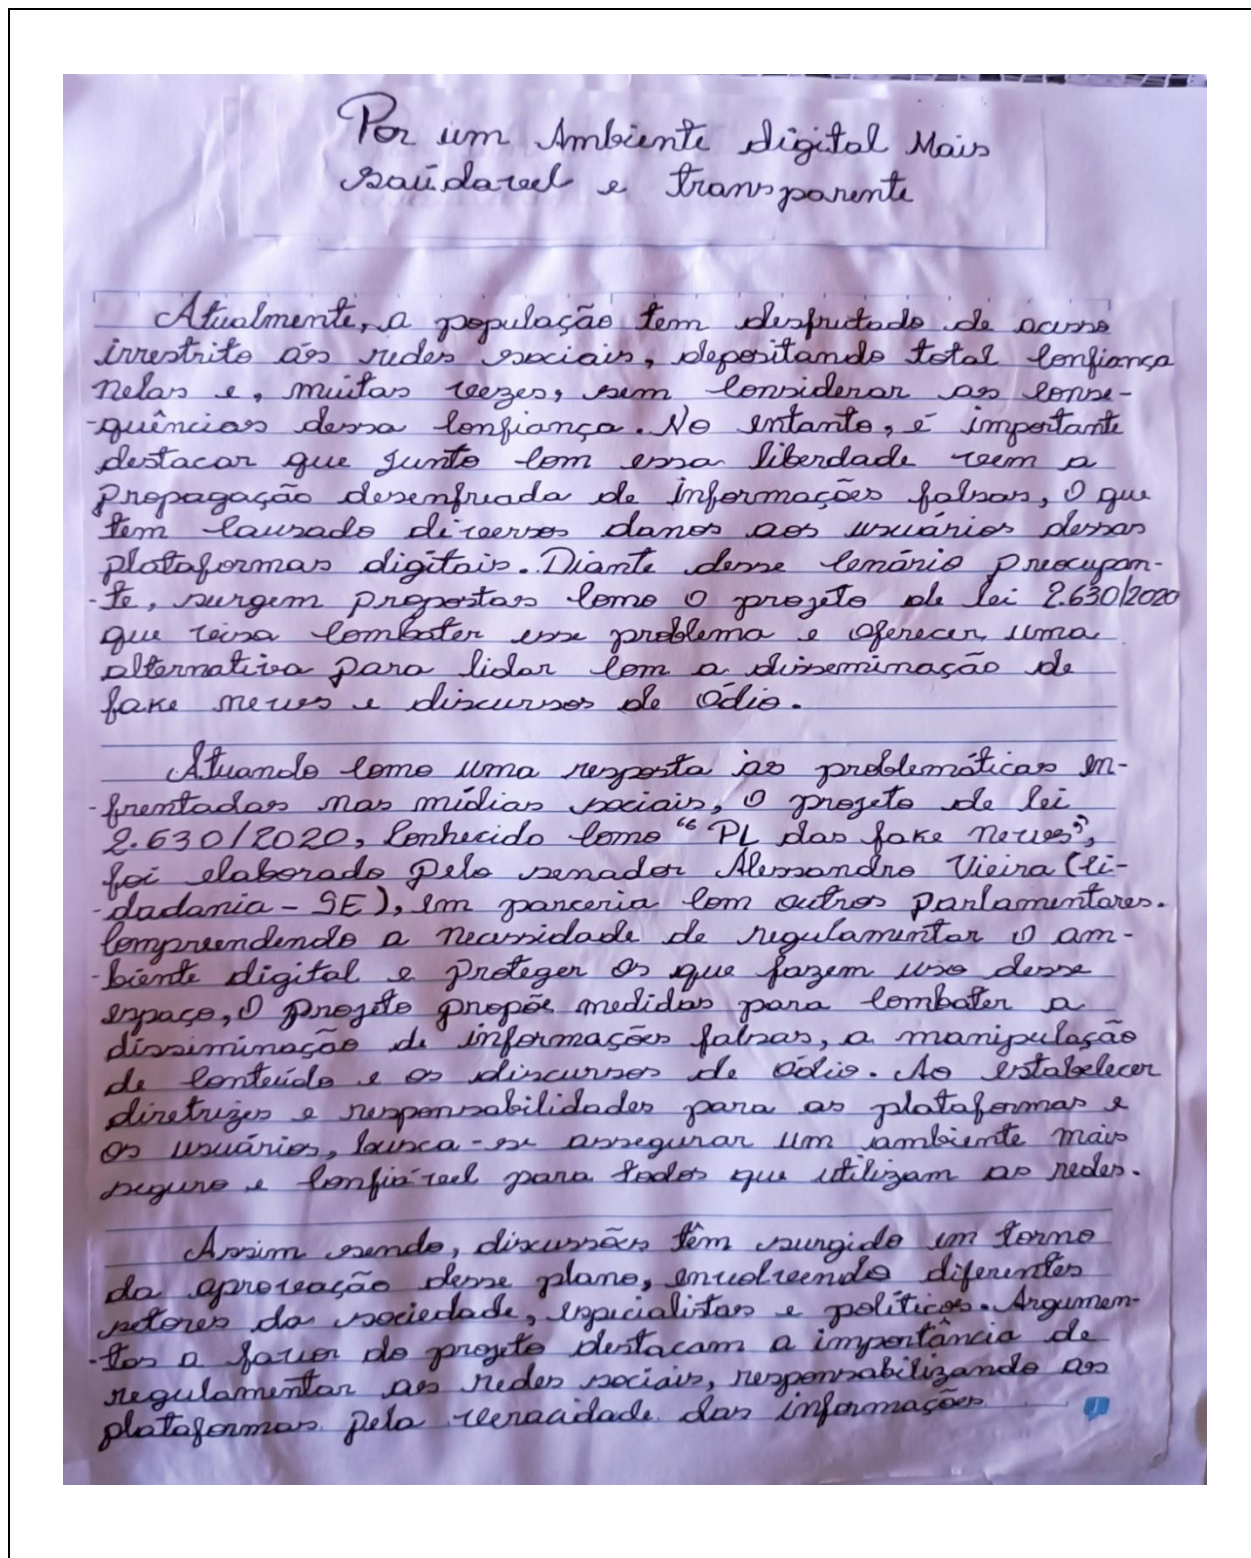 Por um Ambiente digital Mais
saúdavel e transparente
Atualmente, a população tem desfrutado de acesso
irrestrito ás redes sociais, depositando total confiança
nelas e, muitas vezes, sem considerar as conse-
-quências dessa confiança. No entanto, é importante
destacar que junto com essa liberdade vem a
propagação desenfreada de informações falsas, o que
tem causado diversos danos aos usuários dessas
plataformas digitais. Diante desse cenário preocupan-
-te, surgem propostas como o projeto de lei 2.630/2020
que visa combater esse problema e oferecer uma
alternativa para lidar com a disseminação de
fake news e discursos de ódio.
Atuando como uma resposta às problemáticas en-
-frentadas nas mídias sociais, o projeto de lei
2.630/2020, conhecido como "PL das fake news",
foi elaborado pelo senador Alessandro Vieira (ci-
-dadania - SE), em parceria com outros parlamentares.
Compreendendo a necessidade de regulamentar o am-
-biente digital e proteger os que fazem uso desse
espaço, o projeto propõe medidas para combater a
dissiminação de informações falsas, a manipulação
de conteúdo e os discursos de ódio. Ao estabelecer
diretrizes e responsabilidades para as plataformas e
os usuários, busca-se assegurar um ambiente mais
seguro e confiável para todos que utilizam as redes.
Assim sendo, discussões têm surgido em torno
da aprovação desse plano, envolvendo diferentes
setores da sociedade, especialistas e políticos. Argumen-
-tos a favor do projeto destacam a importância de
regulamentar as redes sociais, responsabilizando as
plataformas pela veracidade das informações